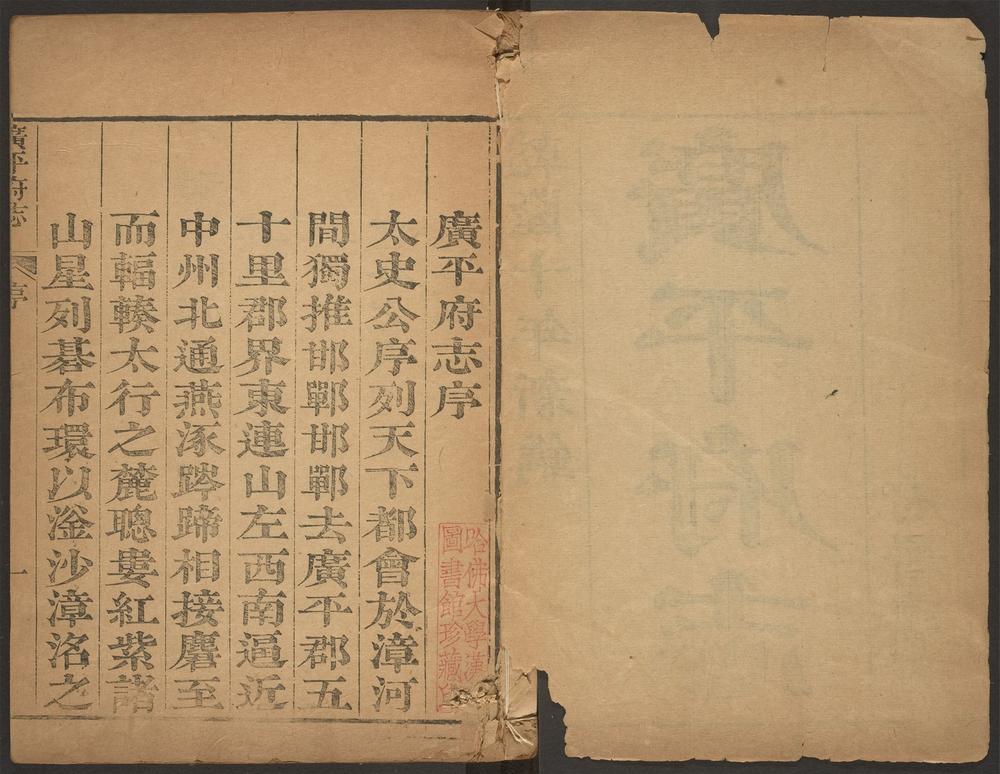 廣平府志序
太史公序列天下都會於漳河
間獨推邯鄲邯鄲去廣平郡五
十里郡界東連山左西南逼近
中州北通燕涿踤蹄相接麏至
而輻輳太行之麓聰婁紅紫諸
山星列碁布環以滏沙漳洺之
廣平府志
序
一
哈佛大學漢
圖書館珍藏印